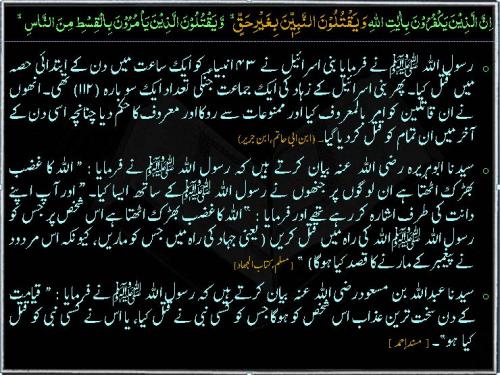 اِنَّ الَّذِيْنَ يَكْفُرُوْنَ بِاٰيٰتِ اللّٰهِ وَيَقْتُلُوْنَ النَّبِيّٖنَ بِغَيْرِ حَقٍّ ۙ وَّ يَقْتُلُوْنَ الَّذِيْنَ يَاْمُرُوْنَ بِالْقِسْطِ مِنَ النَّاسِ ۙ
رسول اللہ ﷺ نے فرمایا بنی اسرائیل نے ۴۳ انبیاء کو ایک ساعت میں دن کے ابتدائی حصہ
میں قتل کیا۔ پھر بنی اسرائیل کے زہاد کی ایک جماعت جنکی تعداد ایک سو بارہ (۱۱۲) تھی۔ انھوں
نے ان قاتلین کو امر بالمعروف کیا اور ممنوعات سے روکا اور معروف کا حکم دیا چنانچہ اسی دن کے
آخر میں ان تمام کو قتل کر دیا گیا۔ (ابن ابی حاتم، ابن جریر)
سیدنا ابوہریرہ رضی اللہ عنہ بیان کرتے ہیں کہ رسول اللہ ﷺ نے فرمایا : "اللہ کا غضب
بھڑک اٹھتا ہے ان لوگوں پر جنھوں نے رسول اللہ ﷺ کے ساتھ ایسا کیا۔" اور آپ اپنے
دانت کی طرف اشارہ کر رہے تھے اور فرمایا : "اللہ کا غضب بھڑک اٹھتا ہے اس شخص پر جس کو
رسول اللہ ﷺ اللہ کی راہ میں قتل کریں (یعنی جہاد کی راہ میں جس کو ماریں، کیونکہ اس مردود
نے پیغمبر کے مارنے کا قصد کیا ہوگا) " [مسلم، کتاب الجہاد]
سیدنا عبداللہ بن مسعود رضی اللہ عنہ بیان کرتے ہیں کہ رسول اللہ ﷺ نے فرمایا : "قیامت
کے دن سخت ترین عذاب اس شخص کو ہوگا جس کو کسی نبی نے قتل کیا، یا اس نے کسی نبی کو قتل
کیا ہو"۔ [ مسند احمد ]